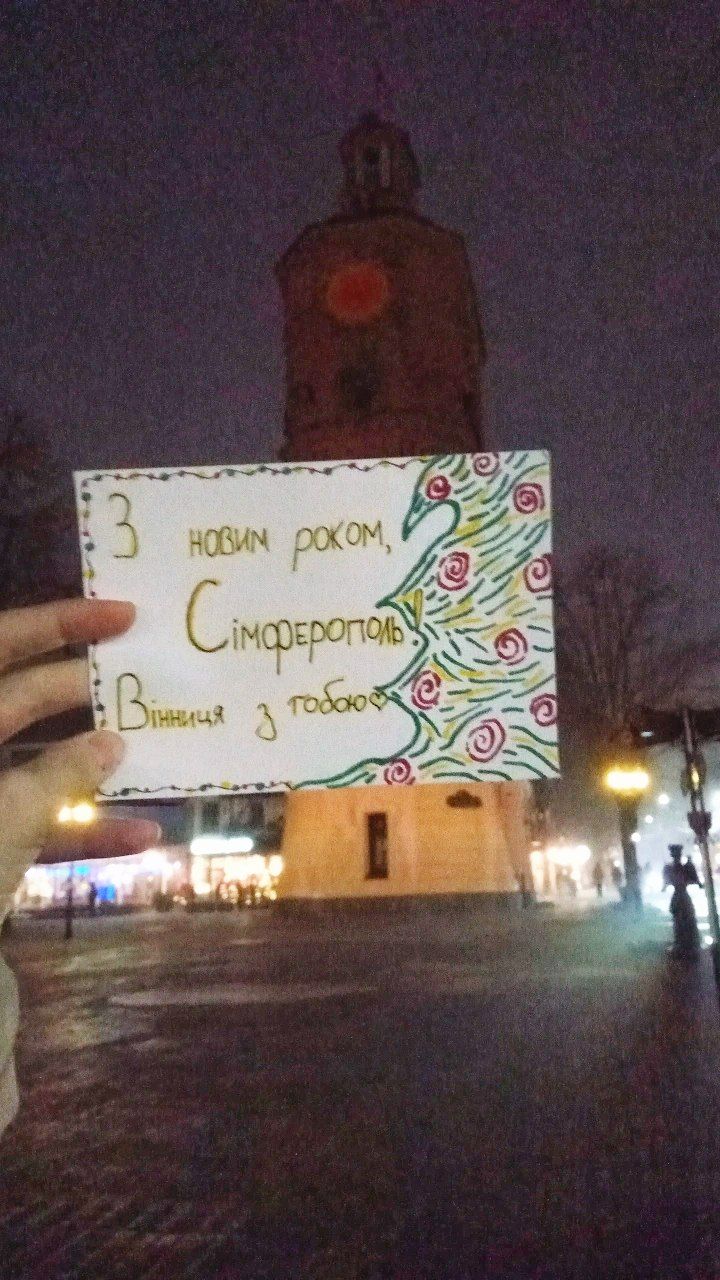 З новим роком,
Сімферополь!
Вінниця з тобою♡